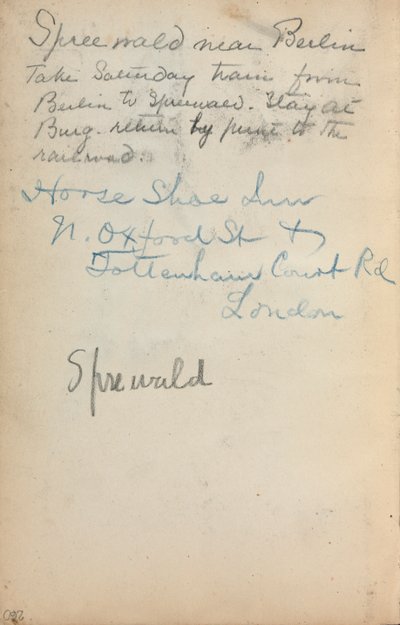 Spreewald near Berlin
Take Saturday train from
Berlin to Spreewald. Stay at
Burg. return by punt to the
railroad.
Horse Shoe Inn
N. Oxford St &
Tottenham Court Rd
London
Sprewald
260